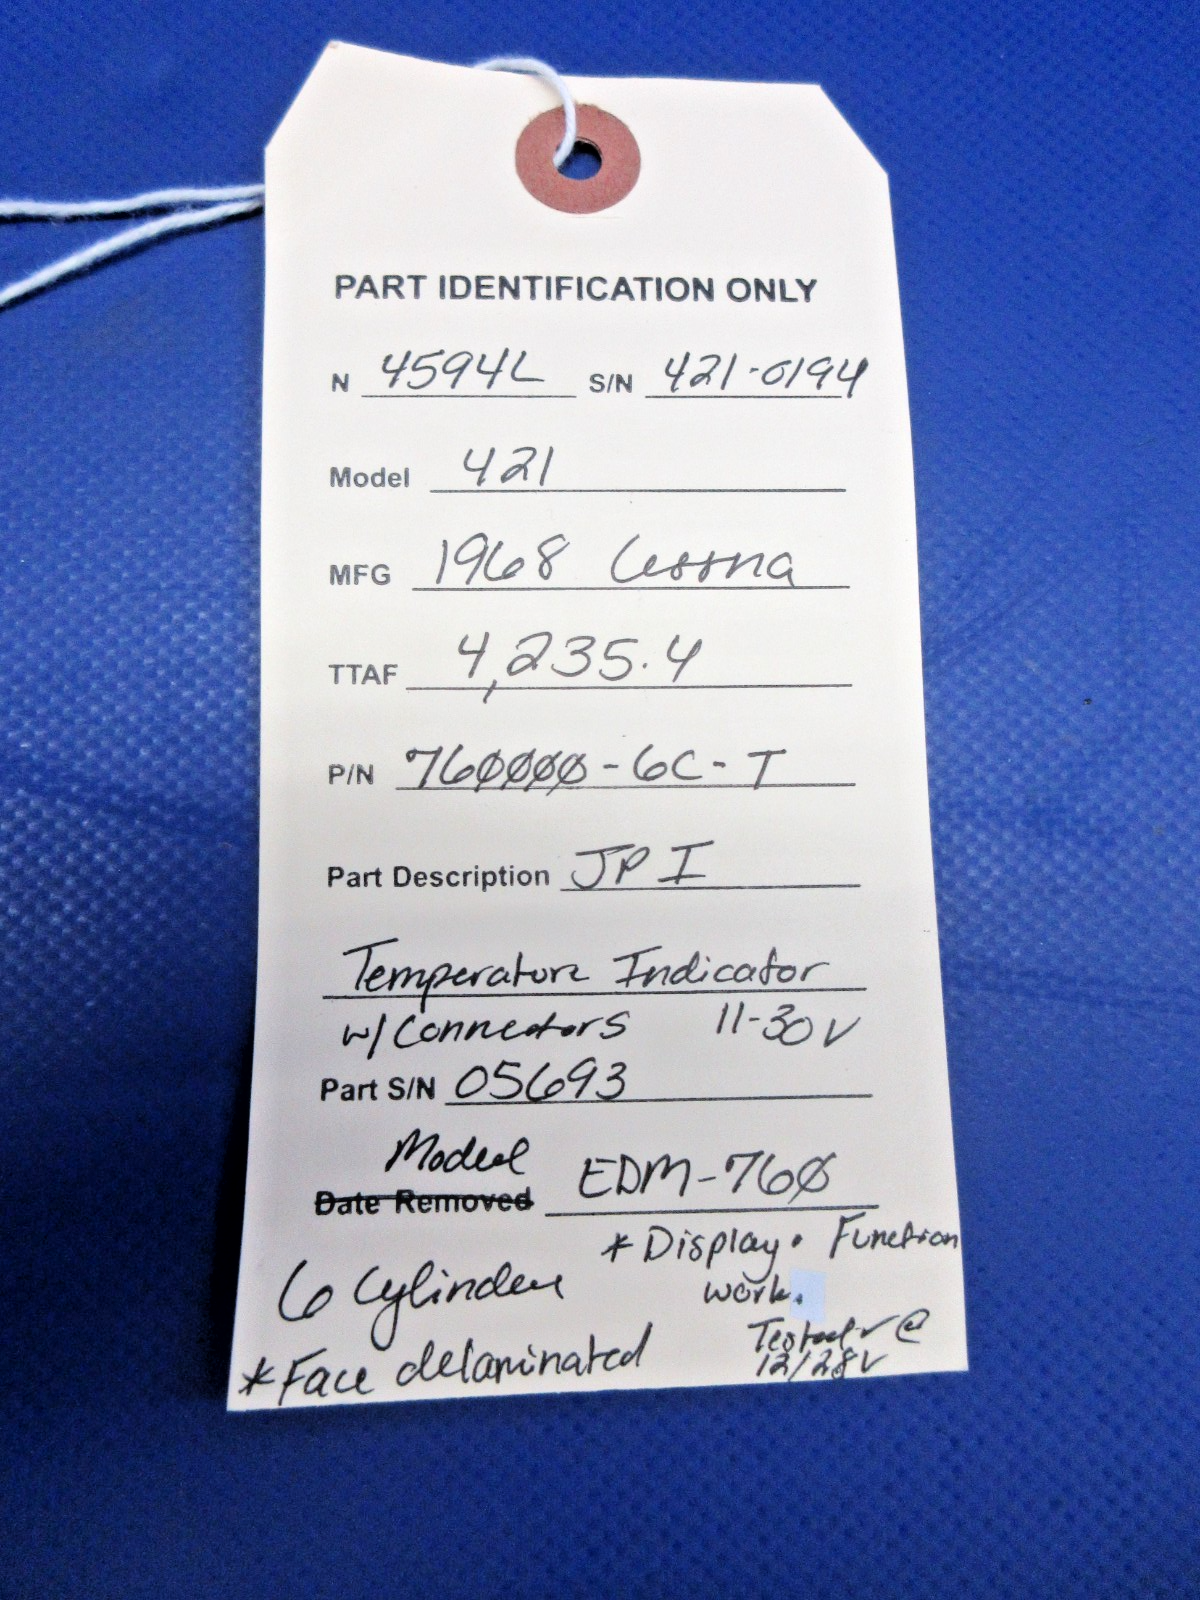 PART IDENTIFICATION ONLY
N 4594L S/N 421-0194
Model 421
MFG 1968 Cessna
TTAF 4,235.4
P/N 760000-6C-T
Part Description JPI
Temperature Indicator
w/Connectors 11-30V
Part S/N 05693
Model
Date Removed EDM-760
* Display. Function
work.
6 Cylinder
Tested @
12/28V
* Face delaminated